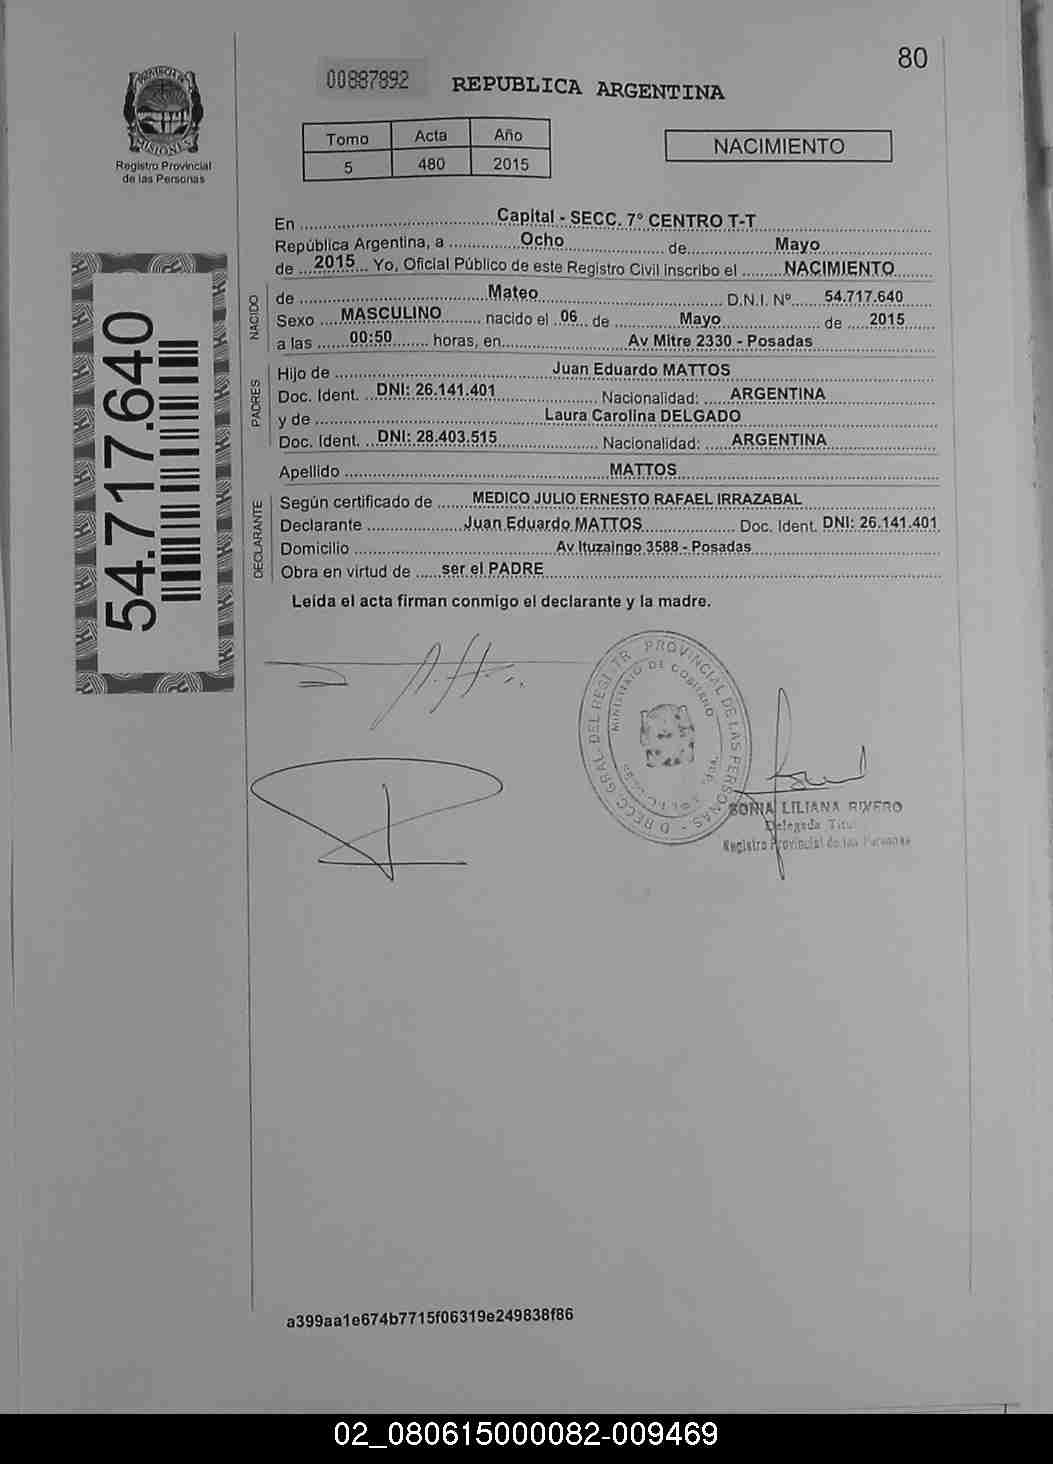 80
00887892
REPUBLICA ARGENTINA
PROVINCIA DE
MISIONES
Registro Provincial
de las Personas
Tomo Acta Año
5 480 2015
NACIMIENTO
En Capital - SECC. 7° CENTRO T-T
República Argentina, a Ocho de Mayo
de 2015 Yo, Oficial Público de este Registro Civil inscribo el NACIMIENTO
NACIDO
de Mateo D.N.I. Nº 54.717.640
Sexo MASCULINO nacido el 06 de Mayo de 2015
a las 00:50 horas, en Av Mitre 2330 - Posadas
PADRES
Hijo de Juan Eduardo MATTOS
Doc. Ident. DNI: 26.141.401 Nacionalidad: ARGENTINA
y de Laura Carolina DELGADO
Doc. Ident. DNI: 28.403.515 Nacionalidad: ARGENTINA
Apellido MATTOS
DECLARANTE
Según certificado de MEDICO JULIO ERNESTO RAFAEL IRRAZABAL
Declarante Juan Eduardo MATTOS Doc. Ident. DNI: 26.141.401
Domicilio Av Ituzaingo 3588 - Posadas
Obra en virtud de ser el PADRE
Leída el acta firman conmigo el declarante y la madre.
54.717.640
PROVINCIAL DE LAS PERSONAS
MINISTERIO DE GOBIERNO
SONIA LILIANA RIVERO
Delegada Titular
Registro Provincial de las Personas
a399aa1e674b7715f06319e249838f86
02_080615000082-009469